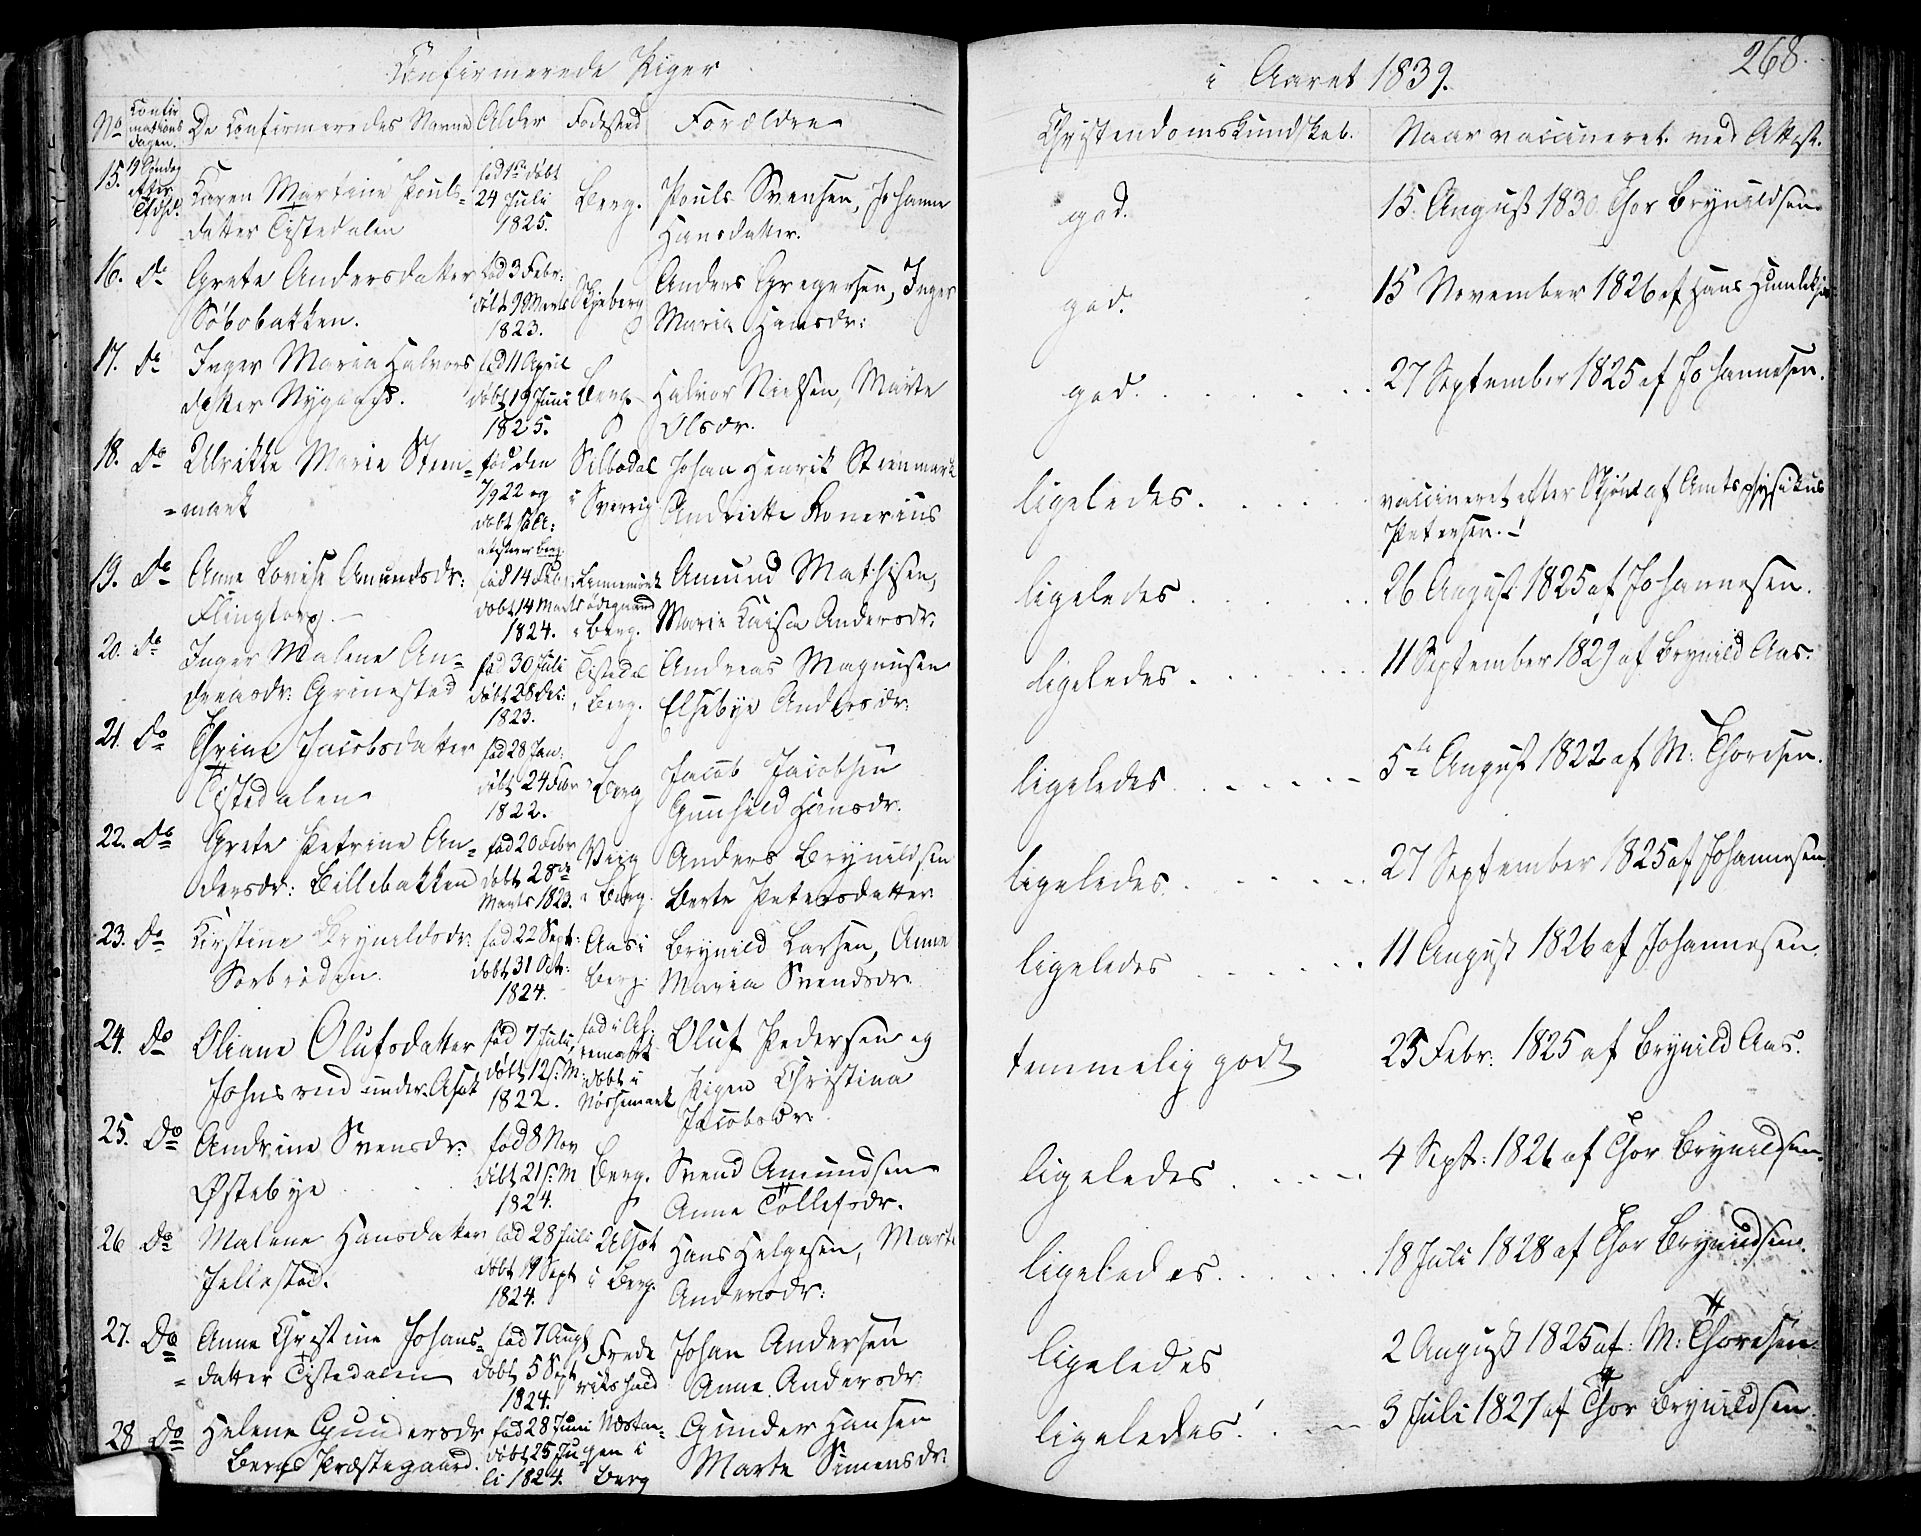 Confirmerede Piger
i Aaret 1839.
268.
No
Confirmations dagen.
De Confirmeredes Navne
Alder
Fødested
Forældre
Christendomskundskab.
Naar vaccineret med Attest.
15. 19 Søndag efter
Karen Martine Pouls-
datter Tistedalen
24 Juli
1825.
Berg.
Pouls Svensen, Johanne
Hansdatter.
god.
15 August 1830 Thor Brynildsen
16. Do
Grete Andersdatter
Søbobakken.
fød 3 Febr:
døbt 9 Marts
1823.
Skjeberg
Anders Gregersen, Inger
Maria Hansdr:
god.
15 November 1826 af Hans
17. Do
Inger Maria Halvors
datter Nygaard.
fød 11 April
døbt 19 Juni
1825.
Berg
Halvor Nielsen, Marte
Olsdr.
god.
27 September 1825 af Johannesen.
18. Do
Ulrikke Marie Steen-
=mark
fød den
7/9 22 og
døbt
Silbodal
i Sverrig
Johan Henrik Steenmark
Andriette Konerius
ligeledes.
vaccineret efter Skjøn af Amtsphysikus
Petersen.
19. Do
Anne Lovise Amundsdr:
Flingtorp.
fød 14 Febr:
døbt 14 Marts
1824.
ødegaard
i Berg.
Amund Mathisen,
Marie Kaisa Andersdr:
ligeledes
26 August 1825 af Johannesen.
20. Do
Inger Malene An=
dreasdr: Grimestad
fød 30 Juli
døbt 28 Dec:
1823.
Tistedal
i Berg.
Andreas Magnusen
Elsebye Andersdr:
ligeledes
11 September 1829 af Brynild Aas.
21. Do
Thrine Jacobsdatter
Tistedalen
fød 28 Jan:
døbt 24 Febr
1822.
Berg
Jacob Jacobsen
Gunhild Hansdr.
ligeledes
5te August 1822 af M: Thoresen.
22. Do
Grete Petrine An=
dersdr: Billebakken
fød 20 Febr
døbt 28de
Marts 1823.
Veiq
i Berg.
Anders Brynildsen
Berte Petersdatter
ligeledes
27 September 1825 af Johannesen
23. Do
Kirstine Brynildsdr:
Sorbrøden
fød 22 Sept:
døbt 31 Octr:
1824.
Aas i
Berg.
Brynild Larsen, Anne
Maria Svendsdr.
ligeledes
11 August 1826 af Johannesen.
24. Do
Oliane Olufsdatter
Johnsrud under Asak
fød 7 Juli,
døbt 12 s: M:
1822.
fød i
døbt i
Oluf Pedersen og
Pigen Christina
Jacobsdr:
temmelig godt
23 Febr: 1825 af Brynild Aas.
25. Do
Andrine Svensdr:
Østebye
fød 8 Nov
døbt 21 s: M
1824.
Berg.
Svend Amundsen
Anne Tollefsdr.
ligeledes
4 Sept: 1826 af Thor Brynildsen
26 Do
Malene Hansdatter
Jellestad.
fød 28 Juli
døbt 19 Sept
1824.
i Berg.
Hans Helgesen, Marte
Andersdr:
ligeledes.
18 Juli 1828 af Thor Brynildsen.
27. Do
Anne Christine Johans=
datter Tistedalen
fød 7 Augst
døbt 5 Sept
1824.
Frede
rikshald
Johan Andersen
Anne Andersdr
ligeledes
2 August 1825 af: M: Thoresen
28 Do
Helene Gundersdr
Bergs Præstegaard.
fød 28 Juni
døbt 25 Ju=
li 1824.
i
Berg
Gunder Hansen
Marte Simensdr:
ligeledes.
3 Juli 1827 af Thor Brynildsen